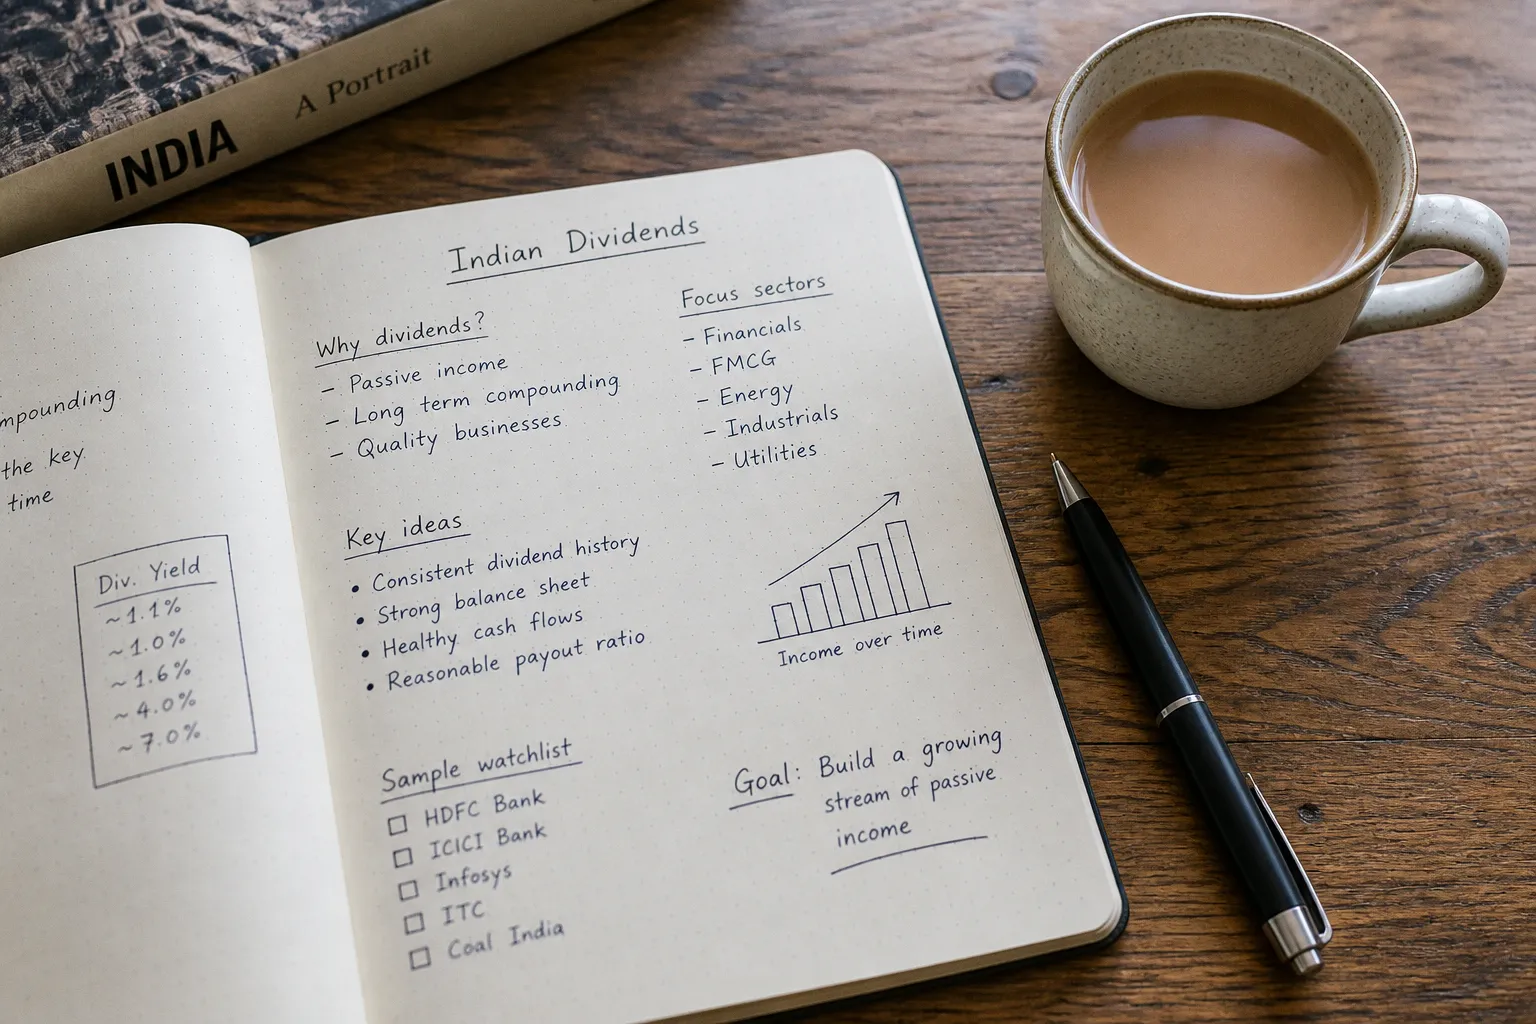 INDIA
A Portrait
the key
time
Div. Yield
~1.1%
~1.0%
~1.6%
~4.0%
~7.0%
Indian Dividends
Why dividends?
– Passive income
– Long term compounding
– Quality businesses
Focus sectors
– Financials
– FMCG
– Energy
– Industrials
– Utilities
Key ideas
• Consistent dividend history
• Strong balance sheet
• Healthy cash flows
• Reasonable payout ratio
Income over time
Sample watchlist
☐ HDFC Bank
☐ ICICI Bank
☐ Infosys
☐ ITC
☐ Coal India
Goal: Build a growing
stream of passive
income